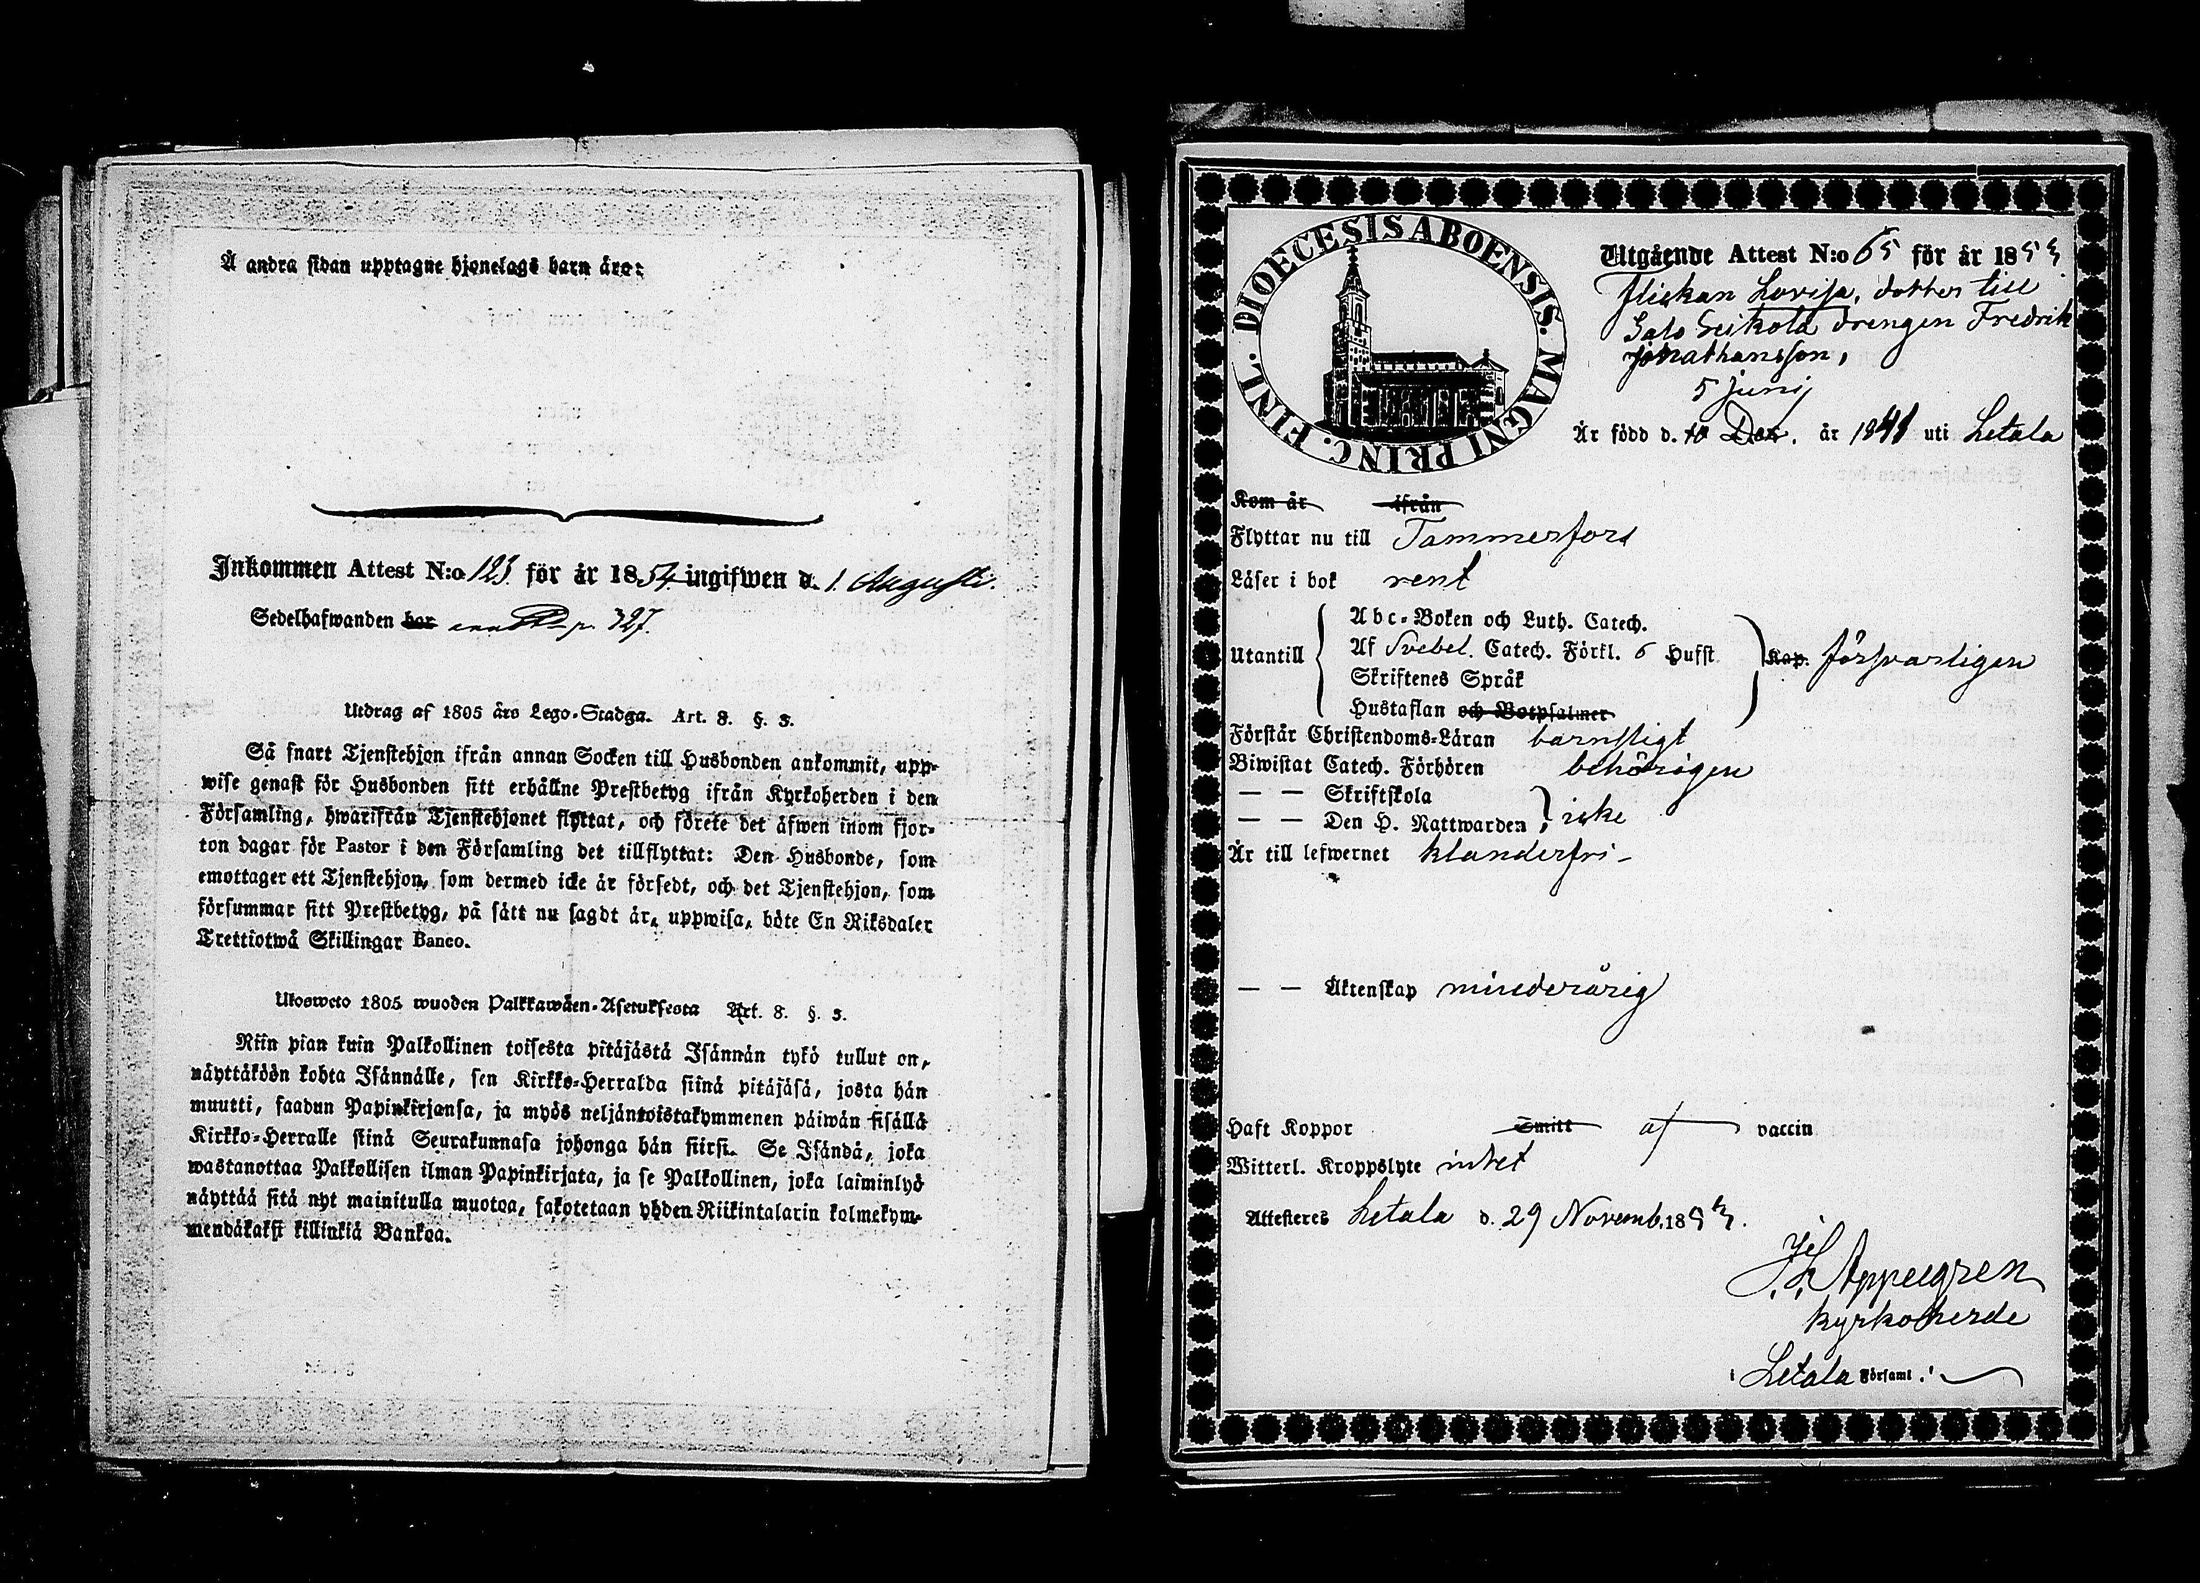 Å andra sidan upptagne hjonelags barn äro:
Inkommen Attest N:o 123 för år 1854 ingifwen d. 1. Augusti.
Sedelhafwanden har p. 327.
Utdrag af 1805 års Lego-Stadga. Art. 8. §. 3.
Så snart Tjenstehjon ifrån annan Socken till Husbonden ankommit, upp-
wise genast för Husbonden sitt erhållne Prestbetyg ifrån Kyrkoherden i den
Församling, hwarifrån Tjenstehjonet flyttat, och förete det äfwen inom fjor-
ton dagar för Pastor i den Församling det tillflyttat: Den Husbonde, som
emottager ett Tjenstehjon, som dermed icke är försedt, och det Tjenstehjon, som
försummar sitt Prestbetyg, på sätt nu sagdt är, uppwisa, böte En Riksdaler
Trettiotwå Skillingar Banco.
Ulosweto 1805 wuoden Palkkawäen-Asetuksesta Art. 8. §. 3.
Niin pian kuin Palkollinen toisesta pitäjästä Isännän tykö tullut on,
näyttäköön kohta Isännälle, sen Kirkko-Herralda siinä pitäjäsä, josta hän
muutti, saadun Papinkirjansa, ja myös neljäntoistakymmenen päiwän sisällä
Kirkko-Herralle siinä Seurakunnasa johonga hän siirsi. Se Isändä, joka
wastanottaa Palkollisen ilman Papinkirjata, ja se Palkollinen, joka laiminlyö
näyttää sitä nyt mainitulla muotoa, sakotetaan yhden Riikintalarin kolmekym-
mendäkaksi killinkiä Bankoa.
DIOECESIS ABOENSIS. MAGNI PRINC. FINL.
Utgående Attest N:o 65 för år 1853
Flickan Lovisa, dotter till
Salo Seikola drengen Fredrik
Jonathansson,
5 Junij
Är född d. 10 Dec. år 1841 uti Letala
Kom år ifrån
Flyttar nu till Tammerfors
Läser i bok rent
Utantill
Abc-Boken och Luth. Catech.
Af Svebel. Catech. Förkl. 6 Hufst. Kap. försvarligen
Skriftenes Språk
Hustaflan och Botpsalmer
Förstår Christendoms-Läran barnsligt
Biwistat Catech. Förhören behörigen
— — Skriftskola
— — Den H. Nattwarden, icke
Är till lefwernet klanderfri –
— — Äktenskap minderårig
Haft Koppor Smitt af vaccin
Witterl. Kroppslyte intet
Attesteres Letala d. 29 Novemb. 1853.
Appelgren
Kyrkoherde
i Letala Församl.